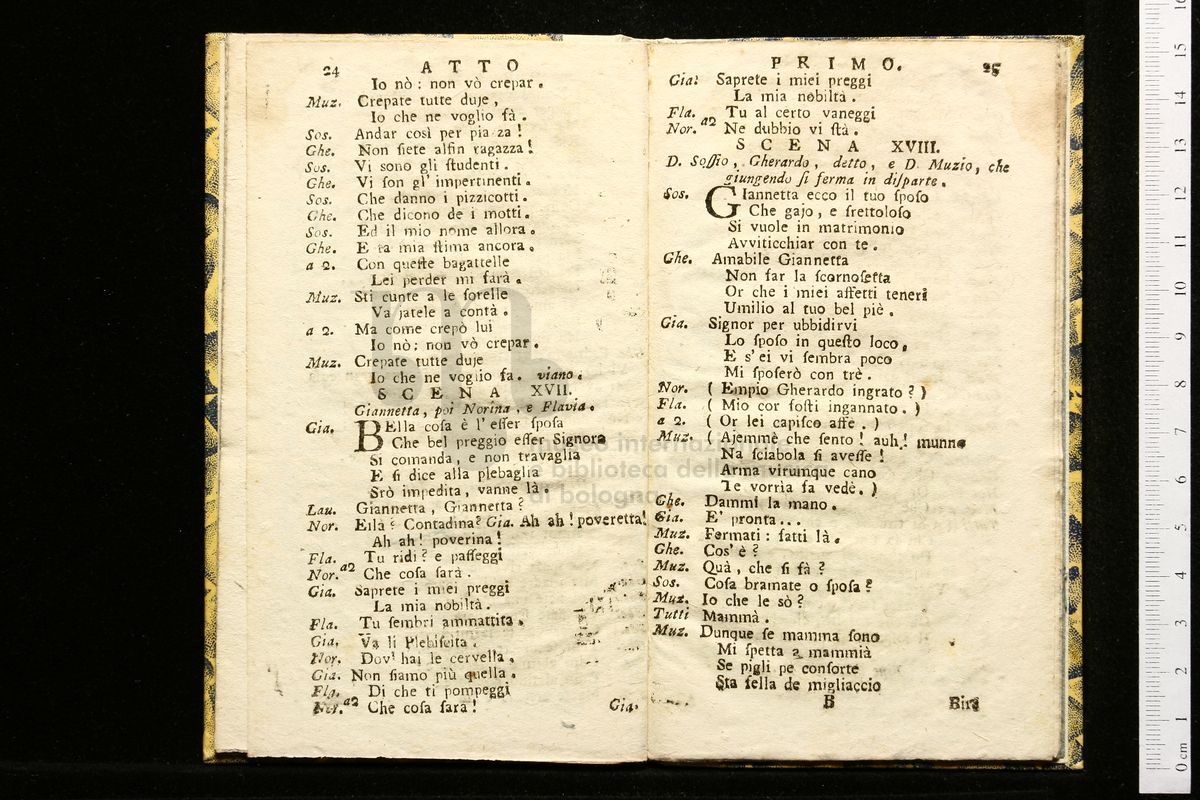 24 ATTO
Io nò: non vò crepar.
Muz. Crepate tutte duje,
Io che ne voglio fà.
Sos. Andar così per piazza!
Ghe. Non ſiete alfin ragazza!
Sos. Vi sono gli ſtudenti.
Ghe. Vi ſon gl' impertinenti.
Sos. Che danno i pizzicotti.
Ghe. Che dicono de i motti.
Sos. Ed il mio nome allora.
Ghe. E la mia ſtima ancora.
a 2. Con queſte bagattelle
Lei perder mi farà.
Muz. Sti cunte a le ſorelle
Va jatele a contà.
a 2. Ma come crepò lui
Io nò: non vò crepar.
Muz. Crepate tutte duje
Io che ne voglio fa. viano.
SCENA XVII.
Giannetta, poi Norina, e Flavia.
Gia. BElla coſa è l' eſſer ſpoſa
Che bel preggio eſſer Signora
Si comanda, e non travaglia
E ſi dice alla plebaglia
Srò impedita, vanne là.
Lau. Giannetta, Giannetta?
Nor. Eilà? Contadina? Gia. Ah ah! poveretta!
Ah ah! poverina!
Fla. Tu ridi? e paſſeggi
Nor. a2 Che coſa ſarà.
Gia. Saprete i miei preggi
La mia nobiltà.
Fla. Tu ſembri ammattita.
Gia. Va li Plebiſcita.
Nor. Dov' hai le cervella.
Gia. Non ſiamo più quella.
Fla. Di che ti pompeggi
Nor. a2 Che coſa ſarà!
Gia.
PRIMO. 25
Gia. Saprete i miei preggi
La mia nobiltà.
Fla. Tu al certo vaneggi
Nor. a2 Ne dubbio vi ſtà.
SCENA XVIII.
D. Soſſio, Gherardo, detto, e D. Muzio, che
giungendo ſi ferma in diſparte.
Sos. GIannetta ecco il tuo ſpoſo
Che gajo, e frettoloſo
Si vuole in matrimonio
Avviticchiar con te.
Ghe. Amabile Giannetta
Non far la ſcornoſetta
Or che i miei affetti teneri
Umilio al tuo bel piè.
Gia. Signor per ubbidirvi
Lo ſpoſo in queſto loco,
E s' ei vi ſembra poco
Mi ſpoſerò con trè.
Nor. ( Empio Gherardo ingrato? )
Fla. ( Mio cor foſti ingannato. )
a 2. ( Or lei capiſco affe. )
Muz. ( Ajemmè che ſento! auh! munno
Na ſciabola ſi aveſſe!
Arma virumque cano
Te vorria fa vedè. )
Ghe. Dammi la mano.
Gia. E' pronta...
Muz. Fermati: fatti là.
Ghe. Cos' è?
Muz. Quà, che ſi fà?
Sos. Coſa bramate o ſpoſa?
Muz. Io che le sò?
Tutti Mammà.
Muz. Dunque ſe mamma ſono
Mi ſpetta a mammià
Se pigli pe conſorte
Sta ſella de migliaccio
B
Bir